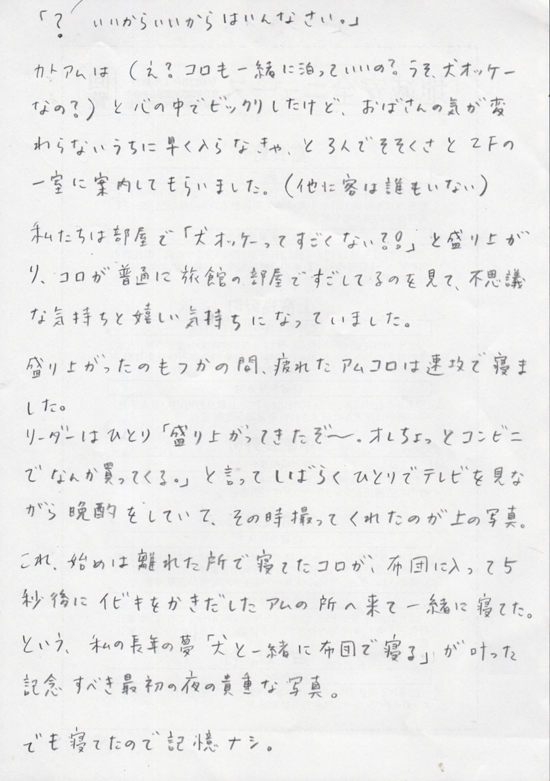 「? いいからいいからはいんなさい。」
カトアムは(え?コロも一緒に泊っていいの?うそ、犬オッケー
なの?)と心の中でビックリしたけど、おばさんの気が変
わらないうちに早く入らなきゃ、と3人でそそくさと2Fの
一室に案内してもらいました。(他に客は誰もいない)
私たちは部屋で「犬オッケーってすごくない??」と盛り上が
り、コロが普通に旅館の部屋ですごしてるのを見て、不思議
な気持ちと嬉しい気持ちになっていました。
盛り上がったのもつかの間、疲れたアムコロは速攻で寝ま
した。
リーダーはひとり「盛り上がってきたぞ〜。オレちょっとコンビニ
でなんか買ってくる。」と言ってしばらくひとりでテレビを見な
がら晩酌をしていて、その時撮ってくれたのが上の写真。
これ、始めは離れた所で寝てたコロが、布団に入って5
秒後にイビキをかきだしたアムの所へ来て一緒に寝てた。
という、私の長年の夢「犬と一緒に布団で寝る」が叶った
記念すべき最初の夜の貴重な写真。
でも寝てたので記憶ナシ。